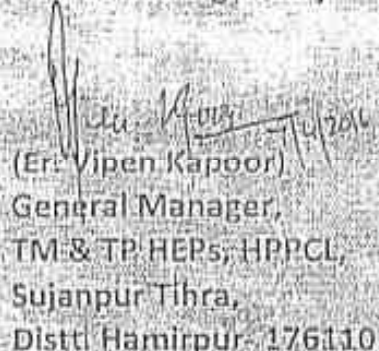 (Er. Vipen Kapoor)
General Manager,
TM & TP HEPs, HPPCL,
Sujanpur Tihra,
Distt Hamirpur- 176110